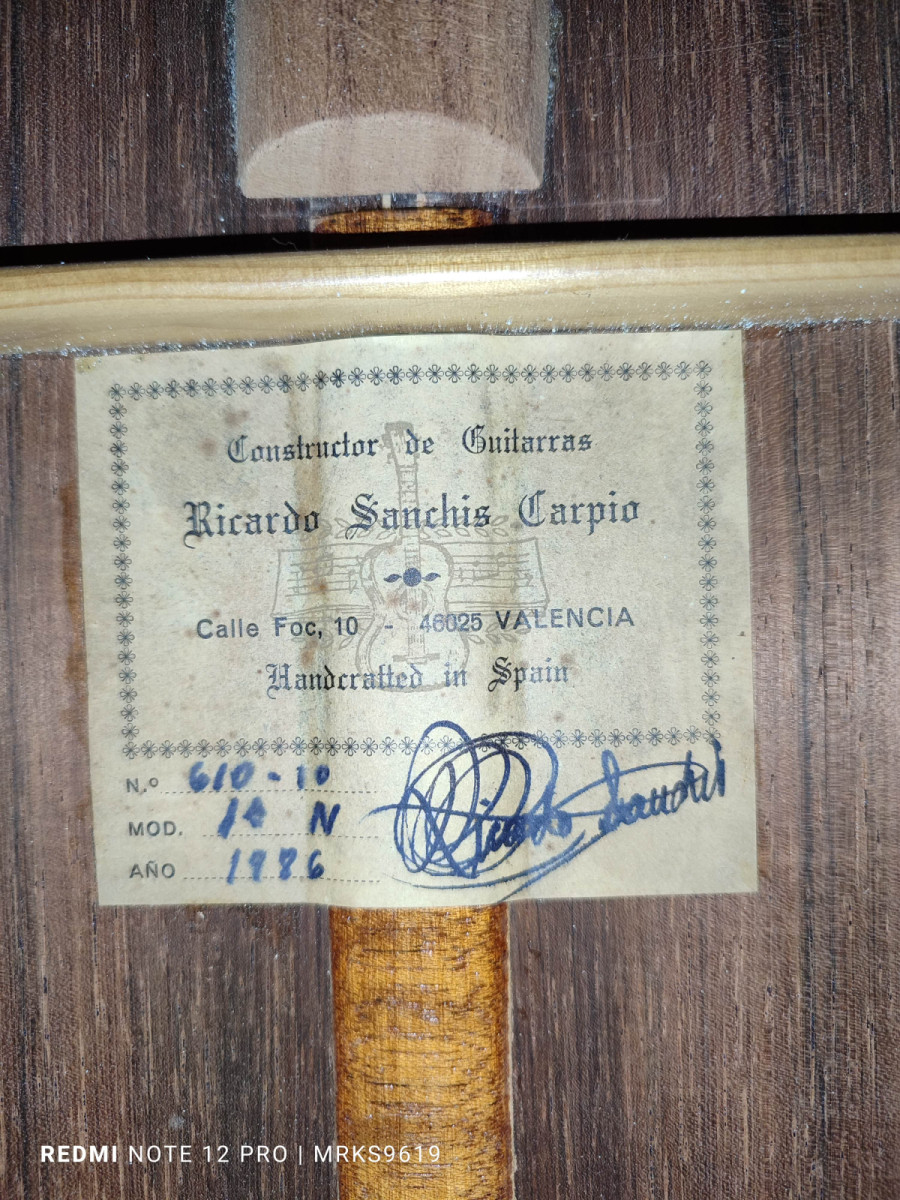 Constructor de Guitarras
Ricardo Sanchis Carpio
Calle Foc, 10 - 46025 VALENCIA
Handcrafted in Spain
N.º 610-10
MOD. N
AÑO 1986
Ricardo Sanchis
REDMI NOTE 12 PRO | MRKS9619